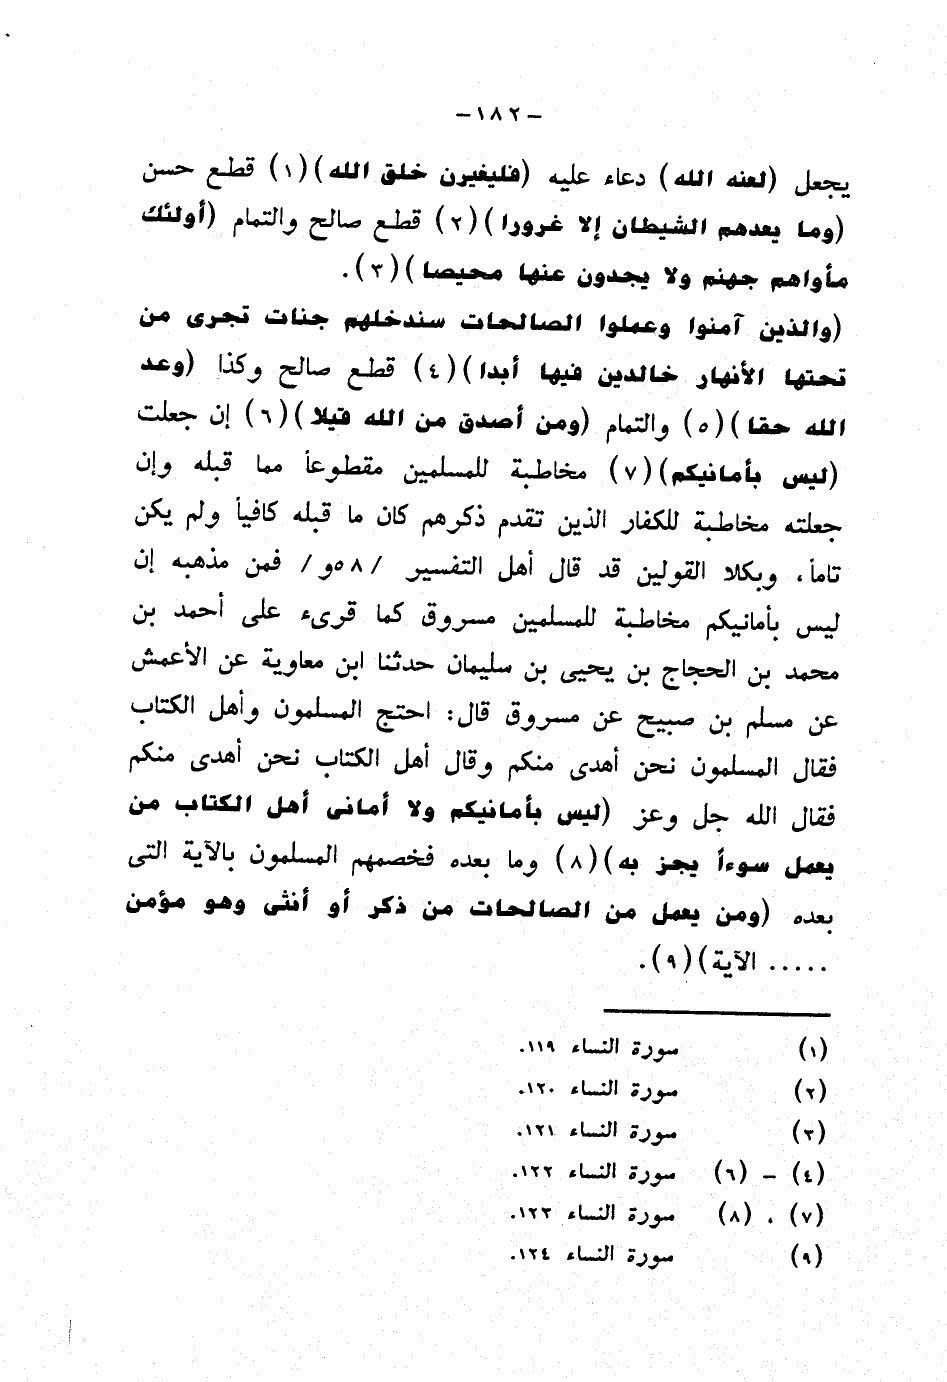 -١٨٢-
يجعل (لعنه الله) دعاء عليه (فليغيرن خلق الله)(١) قطع حسن
(وما يعدهم الشيطان إلا غرورا)(٢) قطع صالح والتمام (أولئك
مأواهم جهنم ولا يجدون عنها محيصا)(٣).
(والذين آمنوا وعملوا الصالحات سندخلهم جنات تجرى من
تحتها الأنهار خالدين فيها أبدا)(٤) قطع صالح وكذا (وعد
الله حقا)(٥) والتمام (ومن أصدق من الله قيلا)(٦) إن جعلت
(ليس بأمانيكم)(٧) مخاطبة للمسلمين مقطوعاً مما قبله وإن
جعلته مخاطبة للكفار الذين تقدم ذكرهم كان ما قبله كافياً ولم يكن
تاماً، وبكلا القولين قد قال أهل التفسير /٥٨و/ فمن مذهبه إن
ليس بأمانيكم مخاطبة للمسلمين مسروق كما قرىء على أحمد بن
محمد بن الحجاج بن يحيى بن سليمان حدثنا ابن معاوية عن الأعمش
عن مسلم بن صبيح عن مسروق قال: احتج المسلمون وأهل الكتاب
فقال المسلمون نحن أهدى منكم وقال أهل الكتاب نحن أهدى منكم
فقال الله جل وعز (ليس بأمانيكم ولا أمانى أهل الكتاب من
يعمل سوءاً يجز به)(٨) وما بعده فخصمهم المسلمون بالآية التى
بعده (ومن يعمل من الصالحات من ذكر أو أنثى وهو مؤمن
..... الآية)(٩).
(١) سورة النساء ١١٩.
(٢) سورة النساء ١٢٠.
(٣) سورة النساء ١٢١.
(٤) - (٦) سورة النساء ١٢٢.
(٧) ، (٨) سورة النساء ١٢٣.
(٩) سورة النساء ١٢٤.